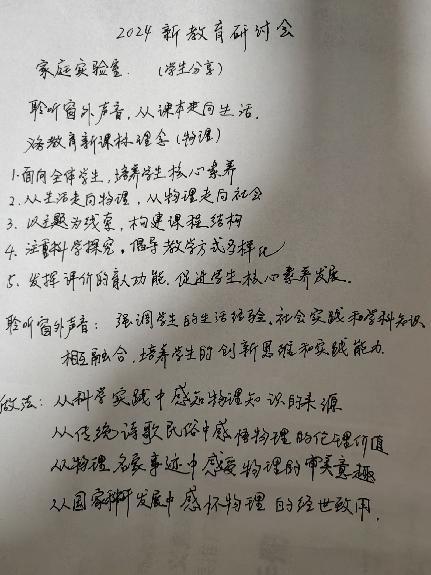 2024 新教育研讨会
家庭实验室. (学生分享)
聆听窗外声音,从课本走向生活.
教育新课标理念(物理)
1.面向全体学生,培养学生核心素养
2.从生活走向物理,从物理走向社会
3. 以主题为线索,构建课程结构
4. 注重科学探究,倡导教学方式多样化
5. 发挥评价的育人功能,促进学生核心素养发展.
聆听窗外声音: 强调学生的生活经验,社会实践和学科知识
相互融合,培养学生的创新思维和实践能力.
做法: 从科学实践中感知物理知识的来源
从传统诗歌民俗中感悟物理的伦理价值
从物理名家事迹中感受物理的审美意趣
从国家科研发展中感怀物理的经世致用.